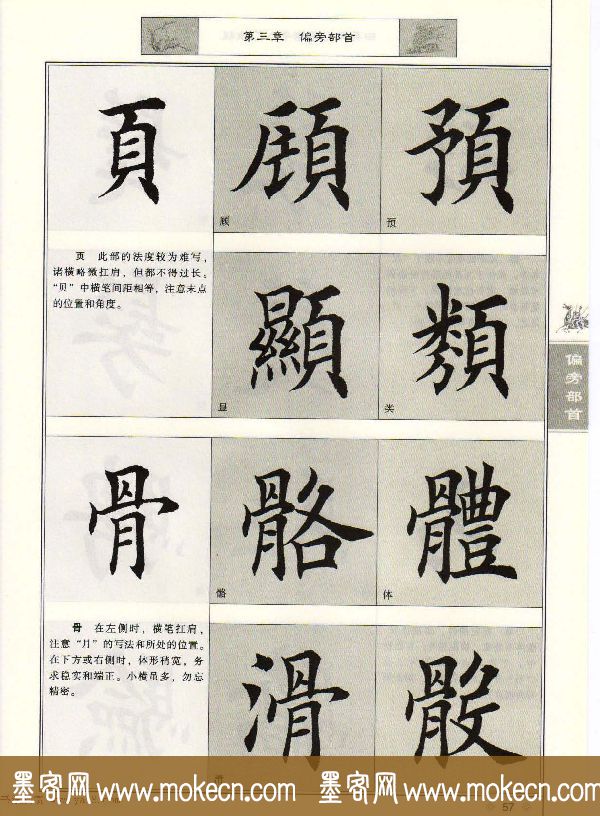 第三章 偏旁部首
頁 頎 預
颀 预
页 此部的法度较为难写，
诸横略微扛肩，但都不得过长。
“贝”中横笔间距相等，注意末点
的位置和角度。
顯 類
显 类
偏旁部首
骨 骼 體
骼 体
骨 在左侧时，横笔扛肩，
注意“月”的写法和所处的位置。
在下方或右侧时，体形稍宽，务
求稳实和端正。小横虽多，勿忘
精密。
滑 骰
墨客网 www.mokecn.com 墨客网 www.mokecn.com
57